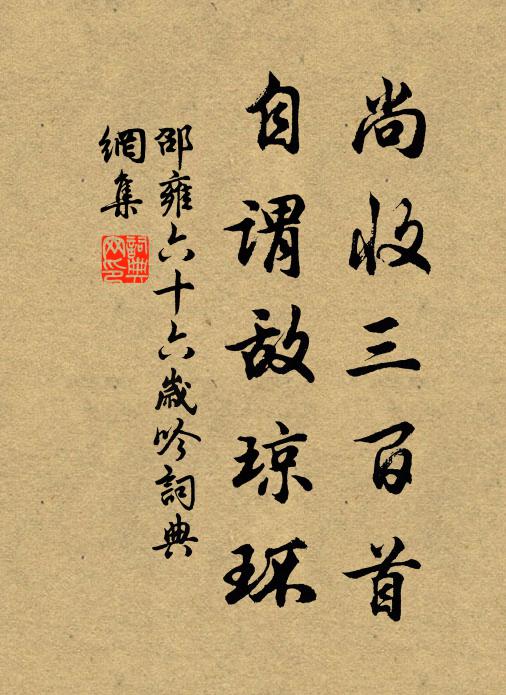 尚收三百首
自謂敌琼环
邵雍六十六歲吟詞典
網集
詞典
网印